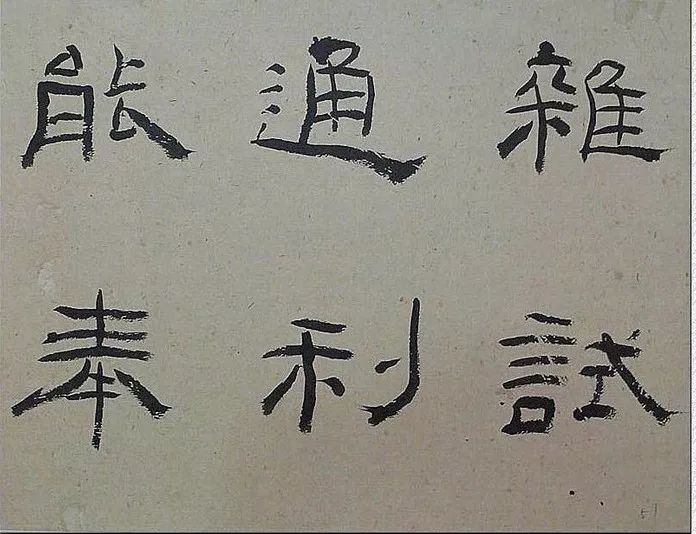 雜試
通利
能奉